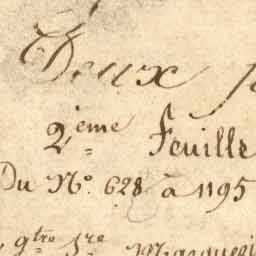 Deux
2ème Feuille
Du N° 628 à 1195